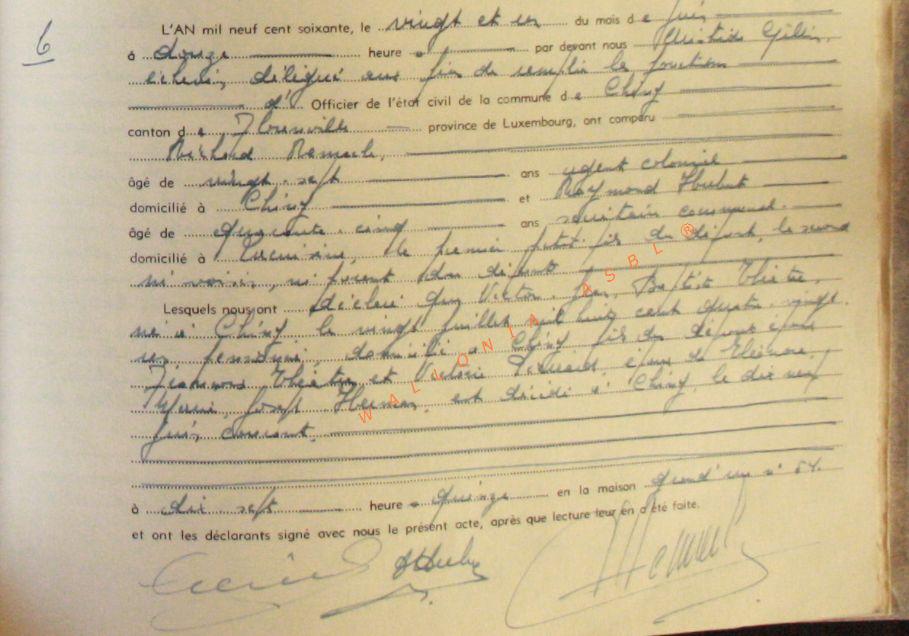 6
L'AN mil neuf cent soixante, le vingt et un du mois de juin
à douze heure s par devant nous Aristide Gillin,
échevin, délégué aux fin de remplir les fonctions
d' Officier de l'état civil de la commune de Chiny
canton de Florenville province de Luxembourg, ont comparu
Richard
âgé de vingt sept ans agent colonial
domicilié à Chiny et Raymond Hubert
âgé de quarante cinq ans secrétaire communal.
domicilié à le premier petit-fils du défunt, le second
ni voisin, ni parent du défunt
Lesquels nous ont déclaré que Victor, Jean, Baptiste Théâtre,
né à Chiny le vingt juillet mil huit cent quatre vingt
un pensionné, domicilié à Chiny, fils des défunts époux
Théâtre et époux de Eléonore,
Marie, Joseph Herman, est décédé à Chiny, le dix neuf
juin courant.
à dix sept heure s quinze en la maison grand'rue n° 54.
et ont les déclarants signé avec nous le présent acte, après que lecture leur en a été faite.
WALLONIA ASBL ®